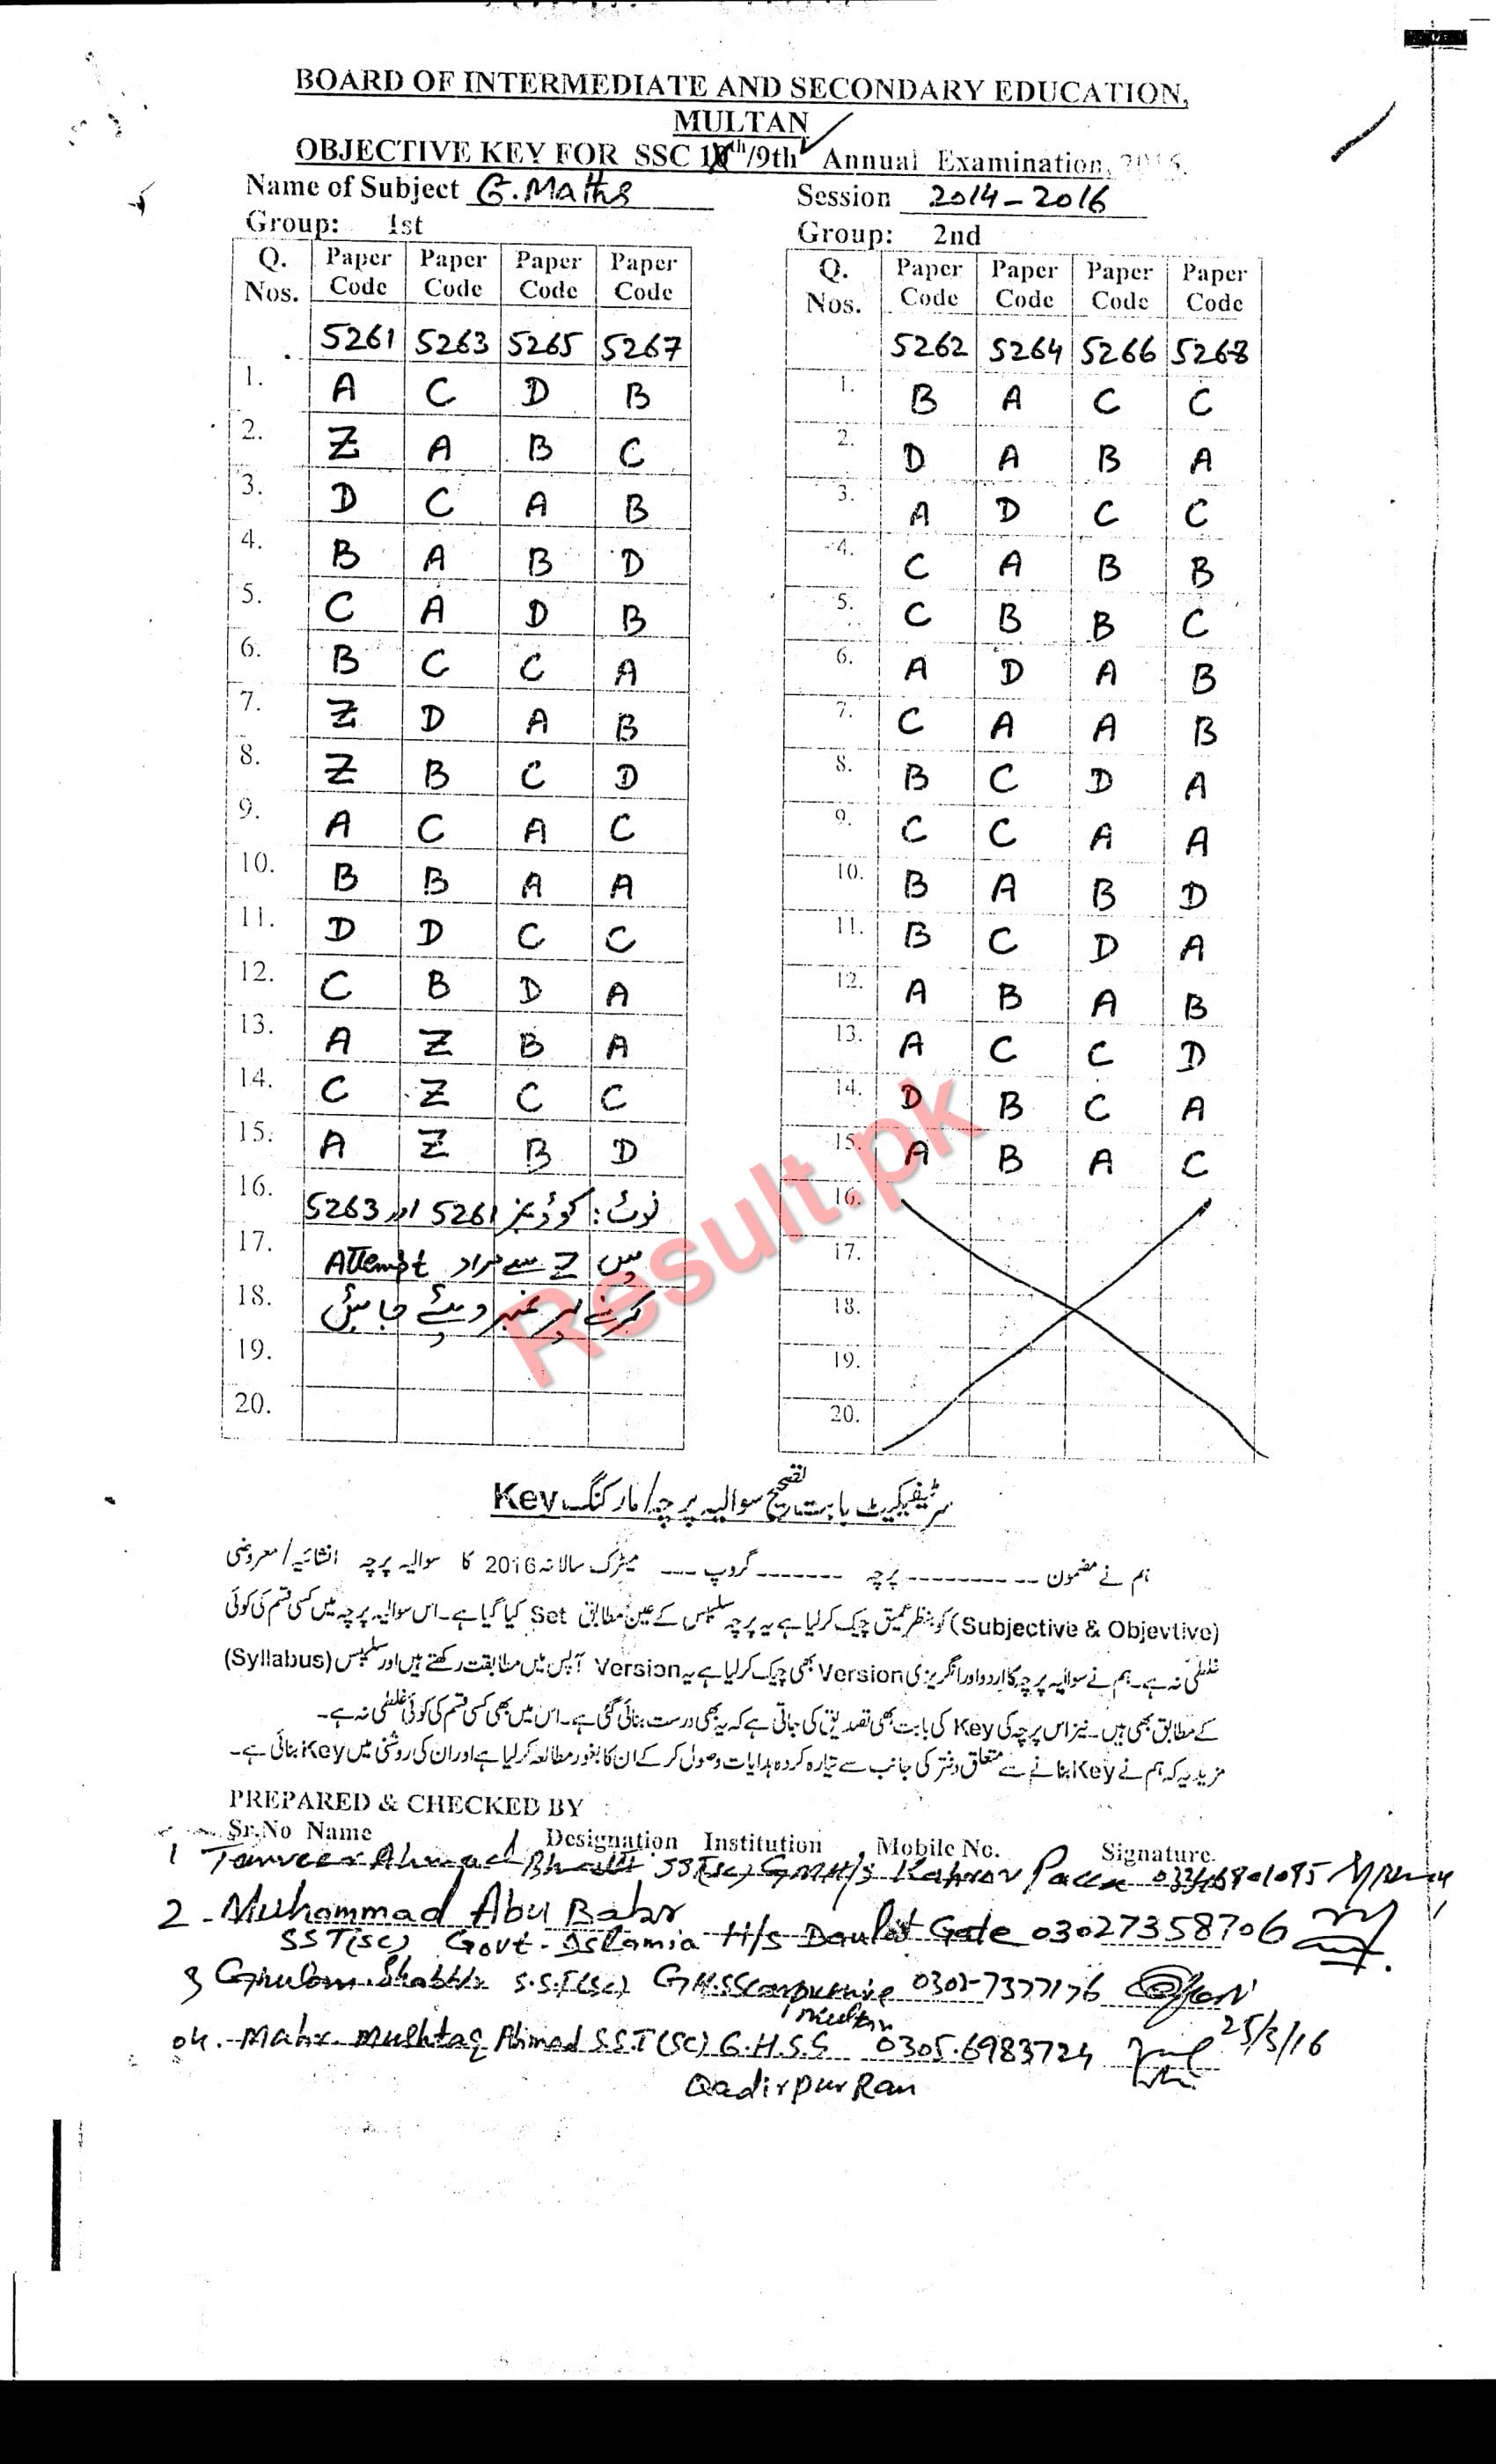 BOARD OF INTERMEDIATE AND SECONDARY EDUCATION,
MULTAN
OBJECTIVE KEY FOR SSC 10th/9th Annual Examination, 2016.
Name of Subject G. Maths
Session 2014-2016
Group: 1st
Group: 2nd
Q. Nos. Paper Code Paper Code Paper Code Paper Code
5261 5263 5265 5267
1. A C D B
2. Z A B C
3. D C A B
4. B A B D
5. C A D B
6. B C C A
7. Z D A B
8. Z B C D
9. A C A C
10. B B A A
11. D D C C
12. C B D A
13. A Z B A
14. C Z C C
15. A Z B D
16. نوٹ: کوڈ نمبر 5261 اور 5263
17. میں Z سے مراد Attempt
18. کرنے پر نمبر دیئے جائیں
19.
20.
Q. Nos. Paper Code Paper Code Paper Code Paper Code
5262 5264 5266 5268
1. B A C C
2. D A B A
3. A D C C
4. C A B B
5. C B B C
6. A D A B
7. C A A B
8. B C D A
9. C C A A
10. B A B D
11. B C D A
12. A B A B
13. A C C D
14. D B C A
15. A B A C
16.
17.
18.
19.
20.
Result.pk
سرٹیفیکیٹ بابت تصحیح سوالیہ پرچہ/مارکنگ Key
ہم نے مضمون ---------- پرچہ ------- گروپ ---- میٹرک سالانہ 2016 کا سوالیہ پرچہ انشائیہ/معروضی
(Subjective & Objevtive) کو بنظر عمیق چیک کرلیا ہے یہ پرچہ سلیبس کے عین مطابق Set کیا گیا ہے۔ اس سوالیہ پرچہ میں کسی قسم کی کوئی
غلطی نہ ہے۔ ہم نے سوالیہ پرچہ کا اردو اور انگریزی Version بھی چیک کرلیا ہے یہ Version آپس میں مطابقت رکھتے ہیں اور سلیبس (Syllabus)
کے مطابق بھی ہیں۔ نیز اس پرچہ کی Key کی بابت بھی تصدیق کی جاتی ہے کہ یہ بھی درست بنائی گئی ہے۔ اس میں بھی کسی قسم کی کوئی غلطی نہ ہے۔
مزید یہ کہ ہم نے Key بنانے سے متعلق دفتر کی جانب سے تیار کردہ ہدایات وصول کر کے ان کا بغور مطالعہ کرلیا ہے اور ان کی روشنی میں Key بنائی ہے۔
PREPARED & CHECKED BY
Sr.No Name Designation Institution Mobile No. Signature.
1 Tanveer Ahmad Bhatti SST(sc) GMH/s Kahror Pacca
2 - Muhammad Abu Bakr
SST(sc) Govt. Islamia H/s Daulat Gate 03027358706
3 Ghulam Shabbir S.S.T(sc) 0302-7377176
Multan
04. Mahr Mushtaq Ahmad S.S.T(SC) G.H.S.S 0305.6983724 25/3/16
Qadirpur Ran